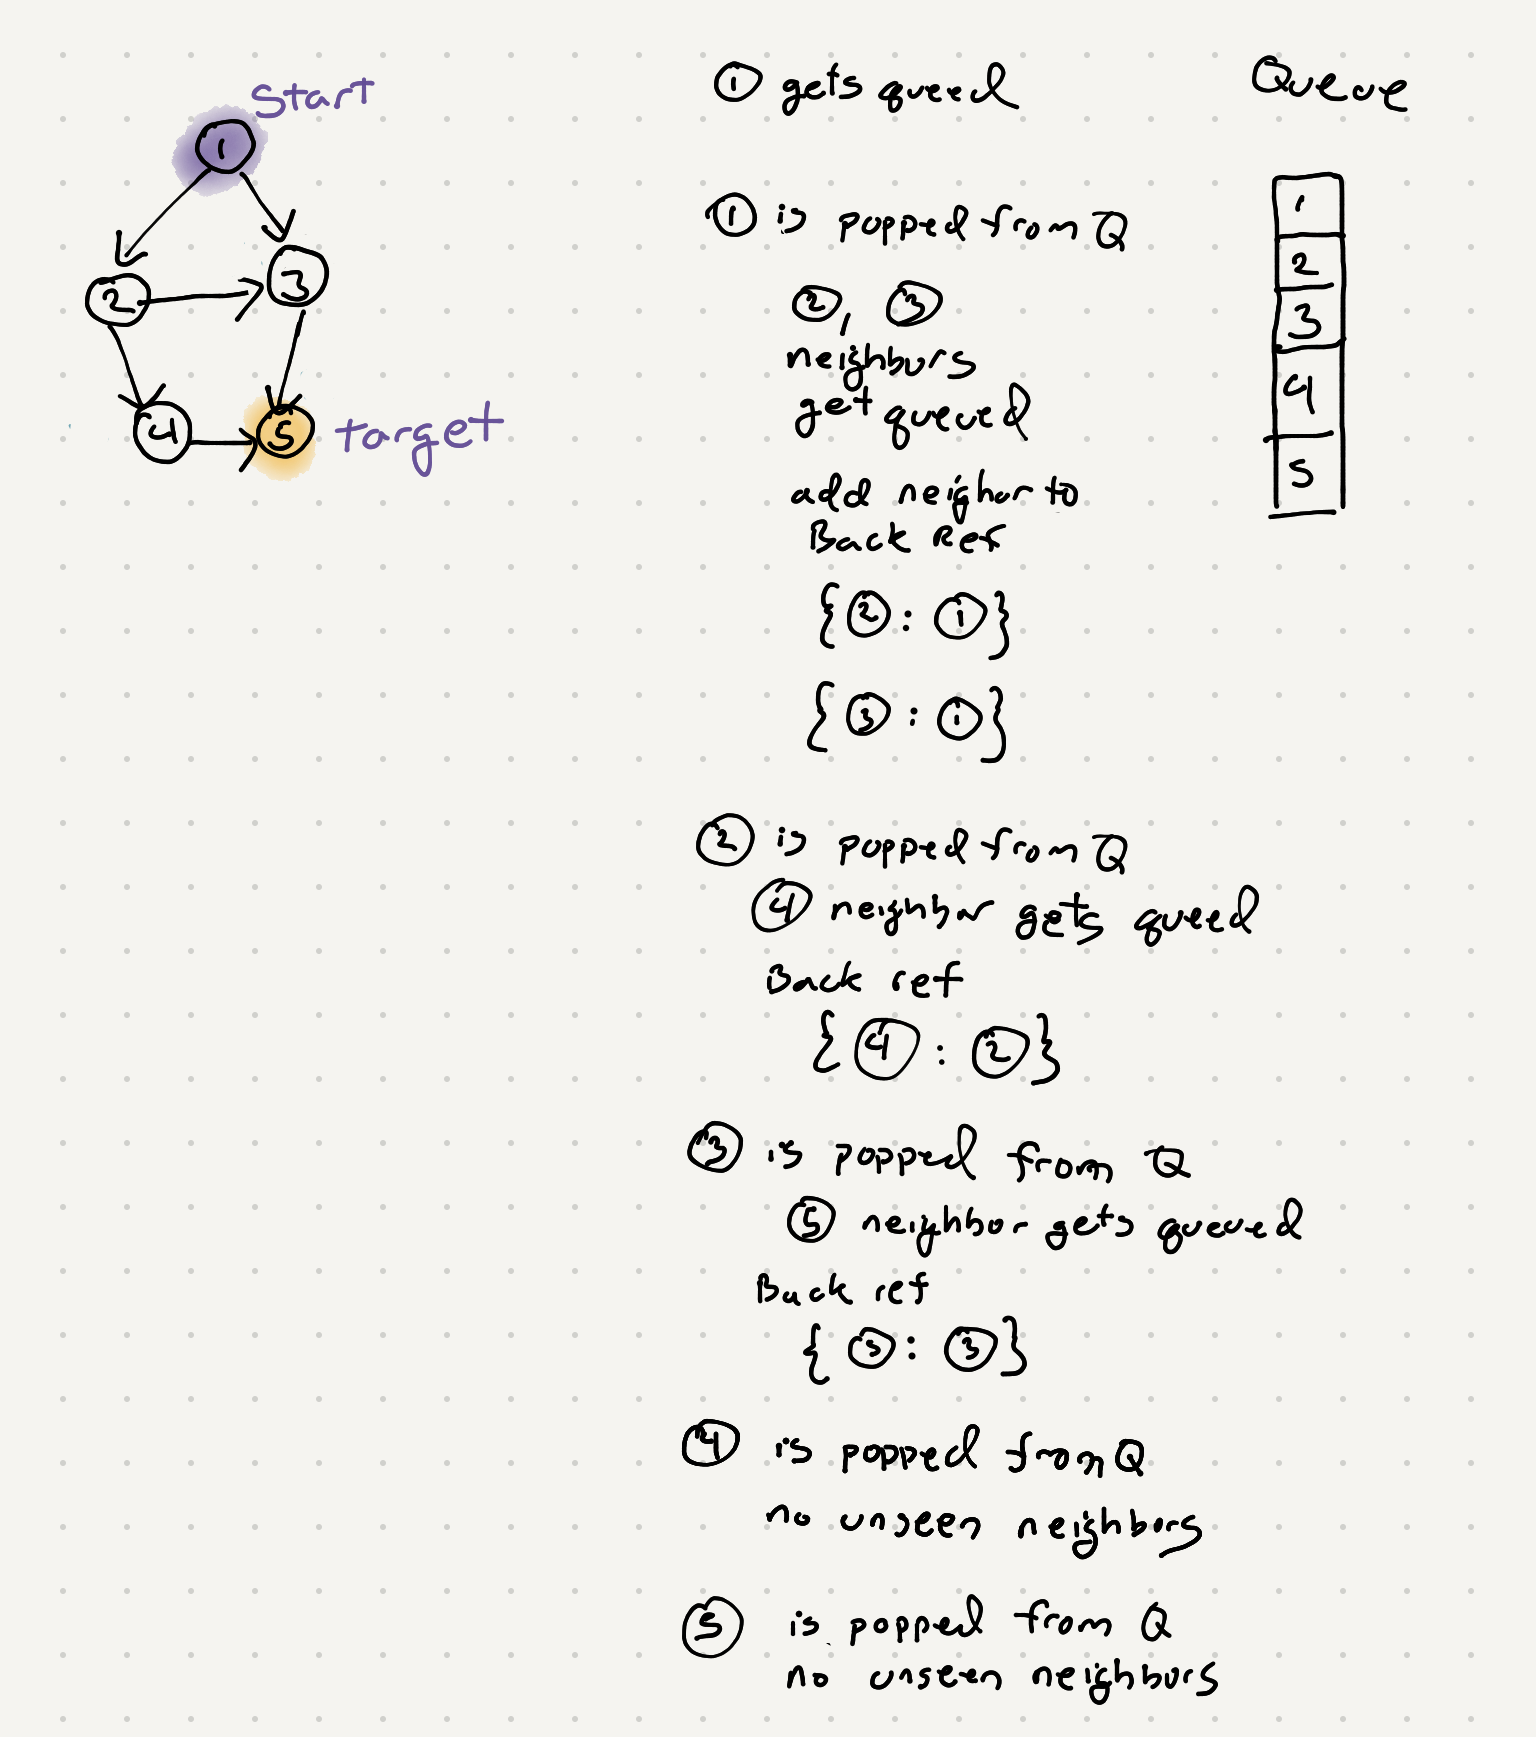 Start
1
2
3
4
5
target
1 gets queed
1 is popped from Q
2, 3
neighburs
get queued
add neighor to
Back Ref
{2 : 1}
{3 : 1}
2 is popped from Q
4 neighbor gets queed
Back ref
{4 : 2}
3 is popped from Q
5 neighbor gets queued
Back ref
{5 : 3}
4 is popped from Q
no unseen neighbors
5 is popped from Q
no unseen neighburs
Queue
1
2
3
4
5